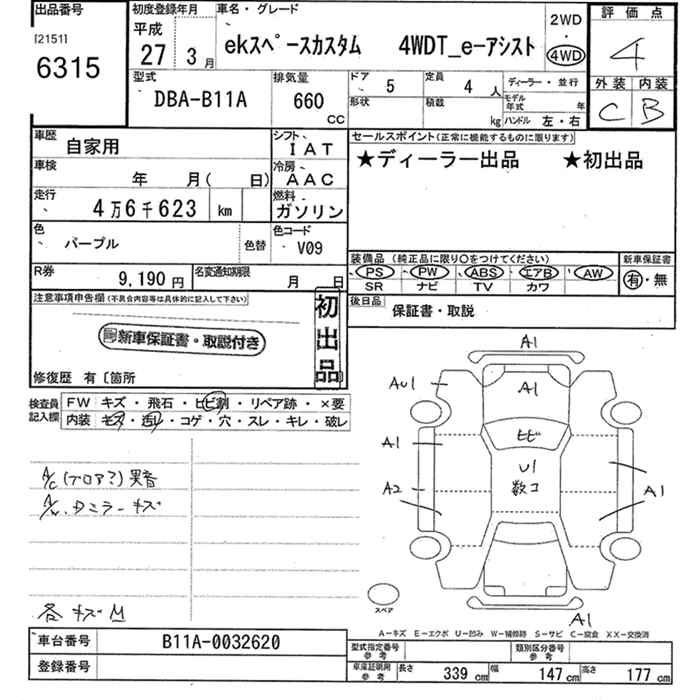 出品番号
[2151]
6315
初度登録年月
平成
27 3月
車名・グレード
ekスペースカスタム 4WDT_e-アシスト
2WD
・
4WD
評価点
4
外装 内装
C B
型式
DBA-B11A
排気量
660
CC
ドア 5
定員 4人
形状
積載 kg
ディーラー・並行
モデル年式 年
ハンドル 左・右
車歴 自家用
シフト IAT
車検 年 月( 日)
冷房 AAC
走行 4万6千623 km
燃料 ガソリン
色 パープル 色替
色コード V09
R券 9,190円
名変通知期限 月 日
セールスポイント(正常に機能するものに限ります)
★ディーラー出品 ★初出品
装備品(純正品に限り〇をつけてください)
PS PW ABS エアB AW
SR ナビ TV カワ
新車保証書
有・無
後日品 保証書・取説
注意事項申告欄(不具合内容等は具体的に記入して下さい)
新車保証書・取説付き
初出品
修復歴 有〔箇所
検査員記入欄
FW キズ・飛石・ヒビ割・リペア跡・×要
内装 キズ・汚レ・コゲ・穴・スレ・キレ・破レ
A/C(ブロア?)異音
A/W.ドミラーキズ
各キズM
A1
AU1
A1
ヒビ
A1
U1
数コ
A2
A1
A1
スペア
A-キズ E-エクボ U-凹み W-補修跡 S-サビ C-腐食 XX-交換済
車台番号 B11A-0032620
登録番号
型式指定番号参考
類別区分番号参考
車庫証明用参考 長さ 339cm 幅 147cm 高さ 177cm